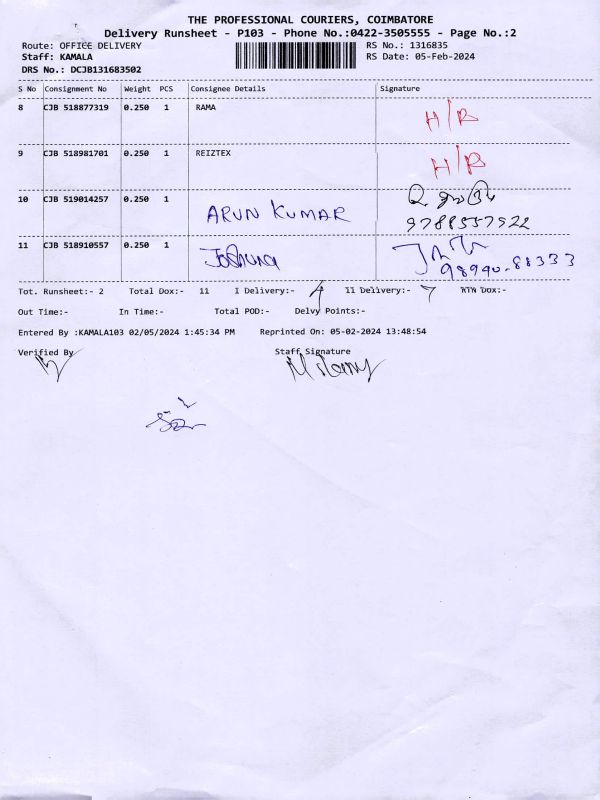 THE PROFESSIONAL COURIERS, COIMBATORE
Delivery Runsheet - P103 - Phone No.:0422-3505555 - Page No.:2
Route: OFFICE DELIVERY RS No.: 1316835
Staff: KAMALA RS Date: 05-Feb-2024
DRS No.: DCJB131683502
S No Consignment No Weight PCS Consignee Details Signature
8 CJB 518877319 0.250 1 RAMA H/R
9 CJB 518981701 0.250 1 REIZTEX H/R
10 CJB 519014257 0.250 1 ARUN KUMAR
11 CJB 518910557 0.250 1 98940-88333
Tot. Runsheet:- 2 Total Dox:- 11 I Delivery:- II Delivery:- 7 RTN Dox:-
Out Time:- In Time:- Total POD:- Delvy Points:-
Entered By :KAMALA103 02/05/2024 1:45:34 PM Reprinted On: 05-02-2024 13:48:54
Verified By Staff Signature